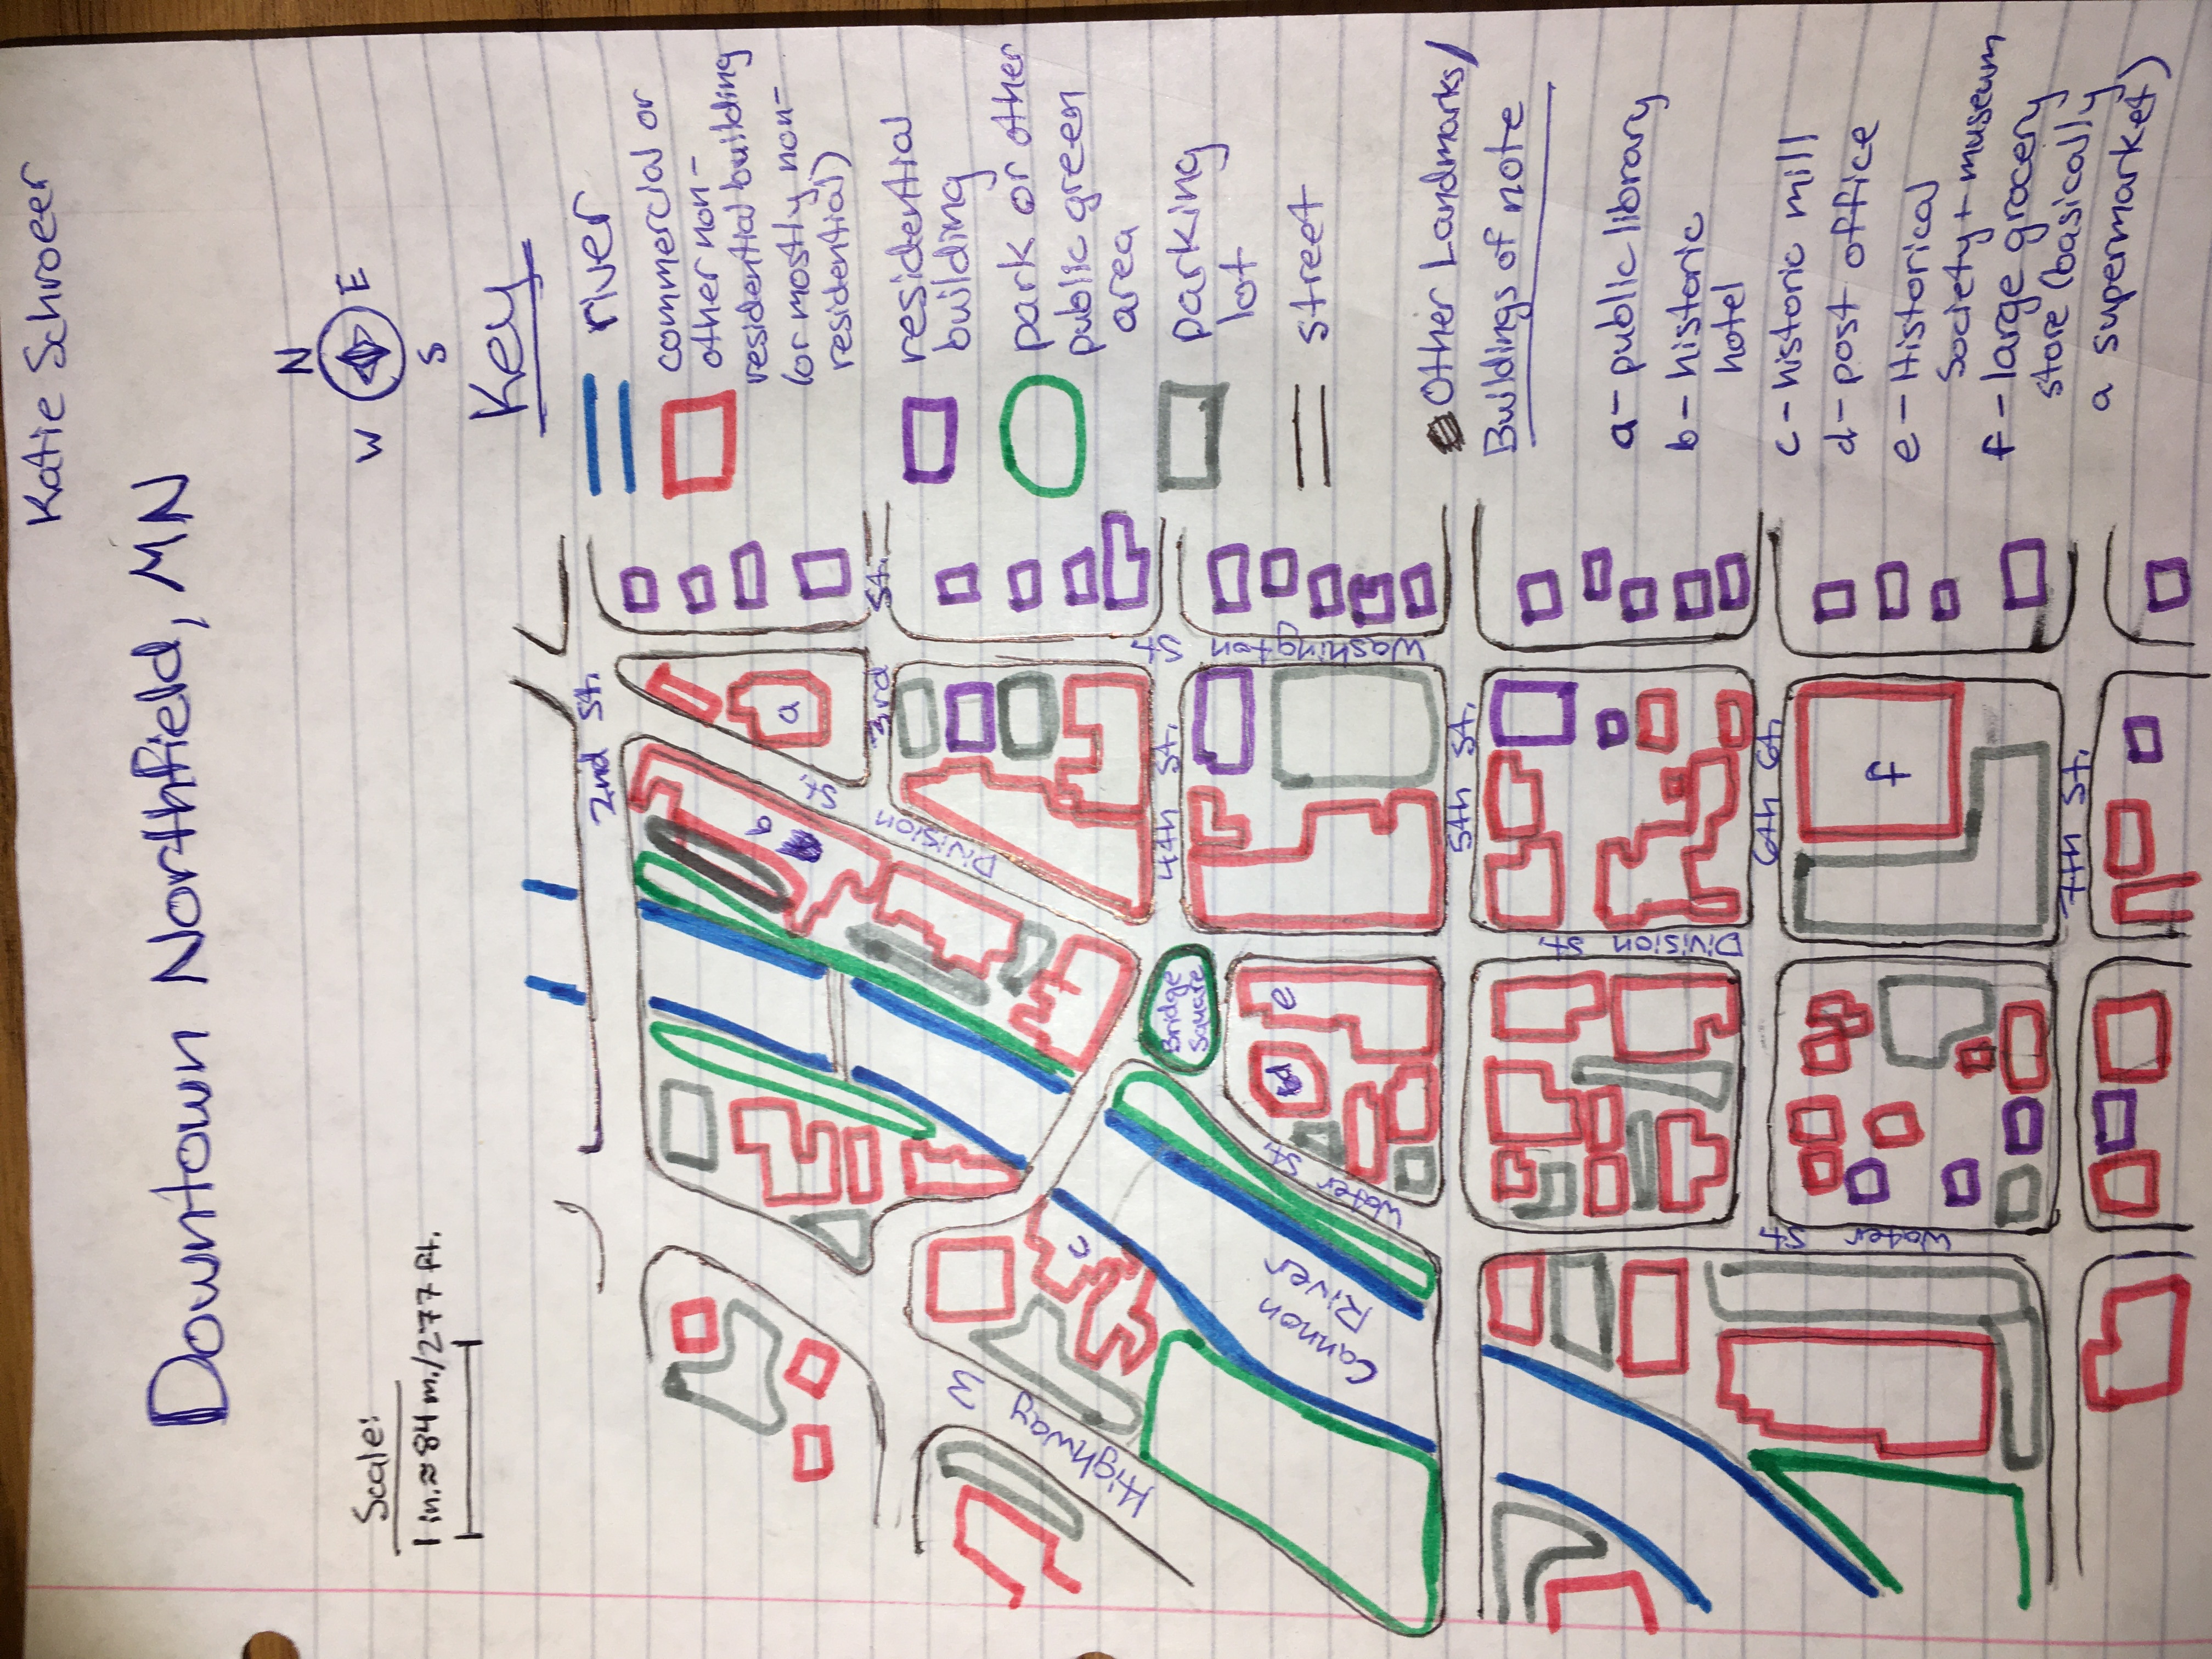 Katie Schroeer
Downtown Northfield, MN
Scale:
1 in. ≈ 84 m./277 ft.
N
W
E
S
Key
river
commercial or
other non-
residential building
(or mostly non-
residential)
residential
building
park or other
public green
area
parking
lot
street
Other Landmarks/
Buildings of note
a - public library
b - historic
hotel
c - historic mill
d - post office
e - Historical
Society + museum
f - large grocery
store (basically
a supermarket)
2nd St.
3rd St.
4th St.
5th St.
6th St.
7th St.
Washington St
Division St.
Division St
Water St.
Water St
Highway 3
Cannon
River
Bridge
Square
a
b
c
d
e
f